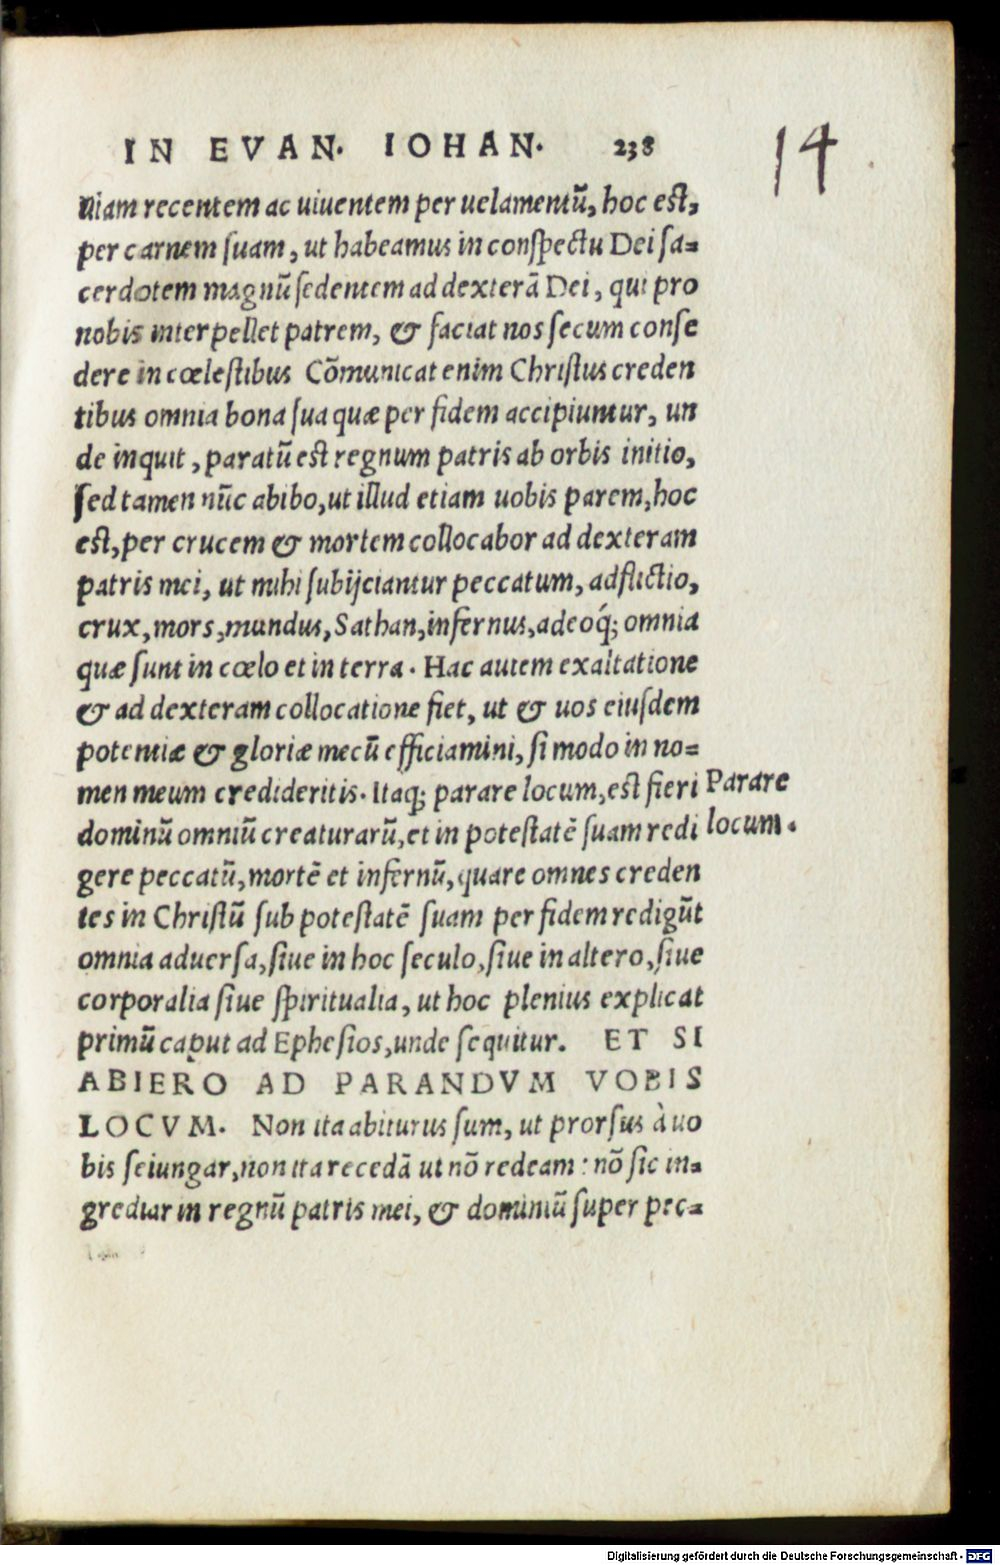 IN EVAN. IOHAN. 238
14
uiam recentem ac uiuentem per uelamentũ, hoc est,
per carnem suam, ut habeamus in conspectu Dei sa=
cerdotem magnũ sedentem ad dexterã Dei, qui pro
nobis interpellet patrem, & faciat nos secum conse
dere in cœlestibus Cõmunicat enim Christus creden
tibus omnia bona sua quæ per fidem accipiuntur, un
de inquit, paratũ est regnum patris ab orbis initio,
sed tamen nũc abibo, ut illud etiam uobis parem, hoc
est, per crucem & mortem collocabor ad dexteram
patris mei, ut mihi subijciantur peccatum, adflictio,
crux, mors, mundus, Sathan, infernus, adeoq́; omnia
quæ sunt in cœlo et in terra. Hac autem exaltatione
& ad dexteram collocatione fiet, ut & uos eiusdem
potentiæ & gloriæ mecũ efficiamini, si modo in no=
men meum credideritis. Itaq; parare locum, est fieri
Parare
dominũ omniũ creaturarũ, et in potestatẽ suam redi
locum.
gere peccatũ, mortẽ et infernũ, quare omnes creden
tes in Christũ sub potestatẽ suam per fidem redigũt
omnia aduersa, siue in hoc seculo, siue in altero, siue
corporalia siue spiritualia, ut hoc plenius explicat
primũ caput ad Ephesios, unde sequitur. ET SI
ABIERO AD PARANDVM VOBIS
LOCVM. Non ita abiturus sum, ut prorsus à uo
bis seiungar, non ita recedã ut nõ redeam: nõ sic in=
grediar in regnũ patris mei, & dominiũ super pec=
Digitalisierung gefördert durch die Deutsche Forschungsgemeinschaft - DFG